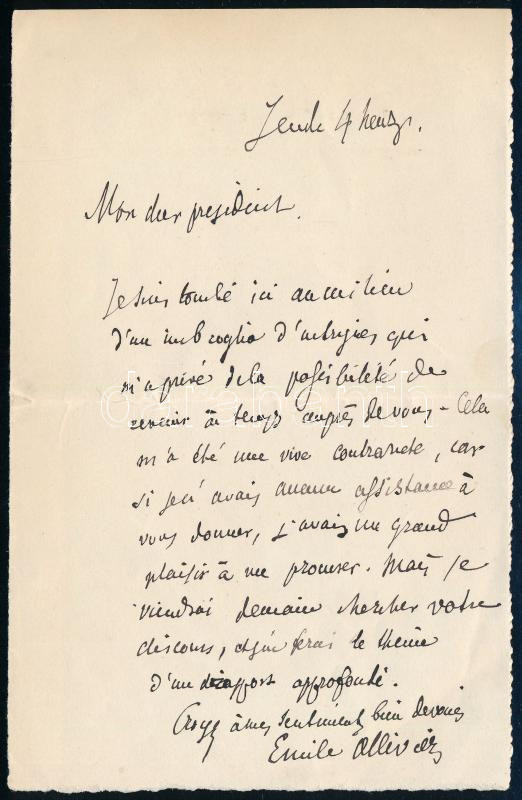 Jeudi 4 heures.
Mon cher président.
Je suis tombé ici au milieu
d'un imbroglio d'intrigues qui
m'a privé de la possibilité de
revenir à temps auprès de vous - Cela
m'a été une vive contrariété, car
si je n'avais aucune assistance à
vous donner, j'avais un grand
plaisir à me promener. Mais je
viendrai demain chercher votre
discours, et j'en ferai le thème
d'un rapport approfondi.
Croyez à mes sentiments bien dévoués
Emile Ollivier
darabanth